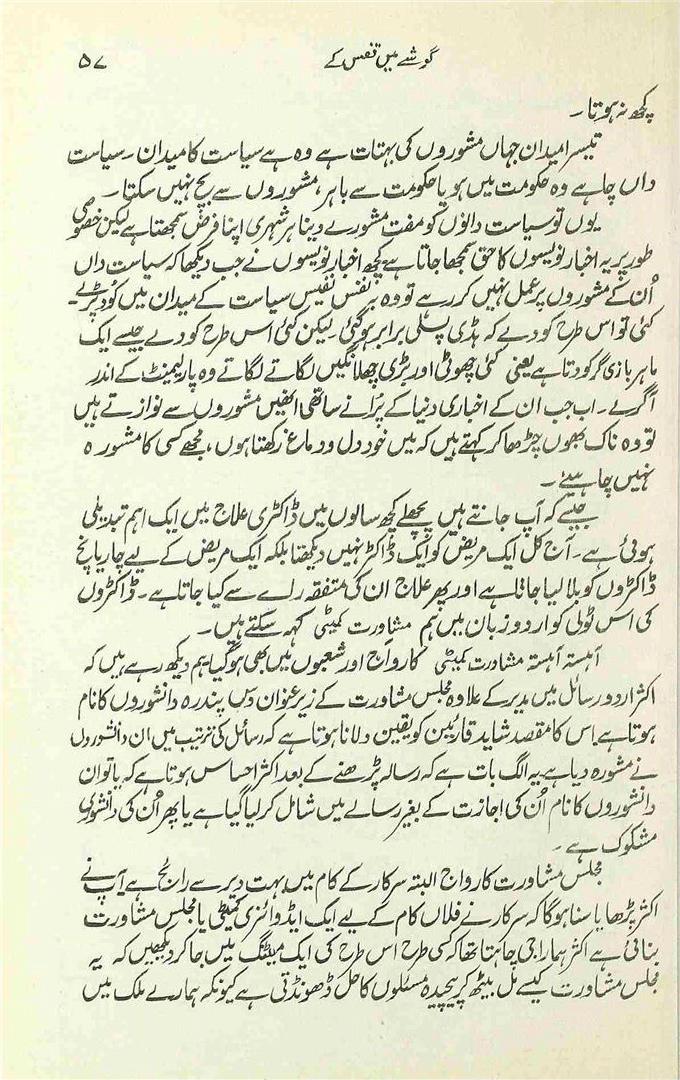 گوشے میں قفس کے ۵۷
کچھ نہ ہوتا۔
تیسرا میدان جہاں مشوروں کی بہتات ہے وہ ہے سیاست کا میدان۔ سیاست
داں چاہے وہ حکومت میں ہو یا حکومت سے باہر، مشوروں سے بچ نہیں سکتا۔
یوں تو سیاست دانوں کو مفت مشورے دینا ہر شہری اپنا فرض سمجھتا ہے لیکن خصوصی
طور پر یہ اخبار نویسوں کا حق سمجھا جاتا ہے کچھ اخبار نویسوں نے جب دیکھا کہ سیاست داں
اُن کے مشوروں پر عمل نہیں کر رہے تو وہ بہ نفس نفیس سیاست کے میدان میں کُود پڑے۔
کئی تو اس طرح کودے کہ ہڈی پسلی برابر ہو گئی۔ لیکن کئی اس طرح کودے جیسے ایک
ماہر بازی گر کودتا ہے یعنی کئی چھوٹی اور بڑی چھلانگیں لگاتے لگاتے وہ پارلیمنٹ کے اندر
آگرے۔ اب جب ان کے اخباری دنیا کے پرانے ساتھی انھیں مشوروں سے نوازتے ہیں
تو وہ ناک بھوں چڑھا کر کہتے ہیں کہ میں خود دل و دماغ رکھتا ہوں، مجھے کسی کا مشورہ
نہیں چاہیئے۔
جیسے کہ آپ جانتے ہیں پچھلے کچھ سالوں میں ڈاکٹری علاج میں ایک اہم تبدیلی
ہوئی ہے۔ آج کل ایک مریض کو ایک ڈاکٹر نہیں دیکھتا بلکہ ایک مریض کے لیے چار پانچ
ڈاکٹروں کو بلا لیا جاتا ہے اور پھر علاج ان کی متفقہ رائے سے کیا جاتا ہے۔ ڈاکٹروں
کی اس ٹولی کو اردو زبان میں ہم مشاورت کمیٹی کہہ سکتے ہیں۔
آہستہ آہستہ مشاورت کمیٹی کا رواج اور شعبوں میں بھی ہو گیا ہم دیکھ رہے ہیں کہ
اکثر اردو رسائل میں مدیر کے علاوہ مجلس مشاورت کے زیر عنوان دس پندرہ دانشوروں کا نام
ہوتا ہے اس کا مقصد شاید قارئین کو یقین دلانا ہوتا ہے کہ رسائل کی ترتیب میں ان دانشوروں
نے مشورہ دیا ہے یہ الگ بات ہے کہ رسالہ پڑھنے کے بعد اکثر احساس ہوتا ہے کہ یا تو ان
دانشوروں کا نام اُن کی اجازت کے بغیر رسالے میں شامل کر لیا گیا ہے یا پھر اُن کی دانشوری
مشکوک ہے۔
مجلس مشاورت کا رواج البتہ سرکار کے کام میں بہت دیر سے رائج ہے آپ نے
اکثر پڑھا یا سنا ہو گا کہ سرکار نے فلاں کام کے لیے ایک ایڈوائزری کمیٹی یا مجلس مشاورت
بنائی ہے اکثر ہمارا جی چاہتا تھا کہ کسی طرح اس طرح کی ایک میٹنگ میں جا کر دیکھیں کہ یہ
مجلس مشاورت کیسے مل بیٹھ کر پیچیدہ مسئلوں کا حل ڈھونڈتی ہے کیونکہ ہمارے ملک میں